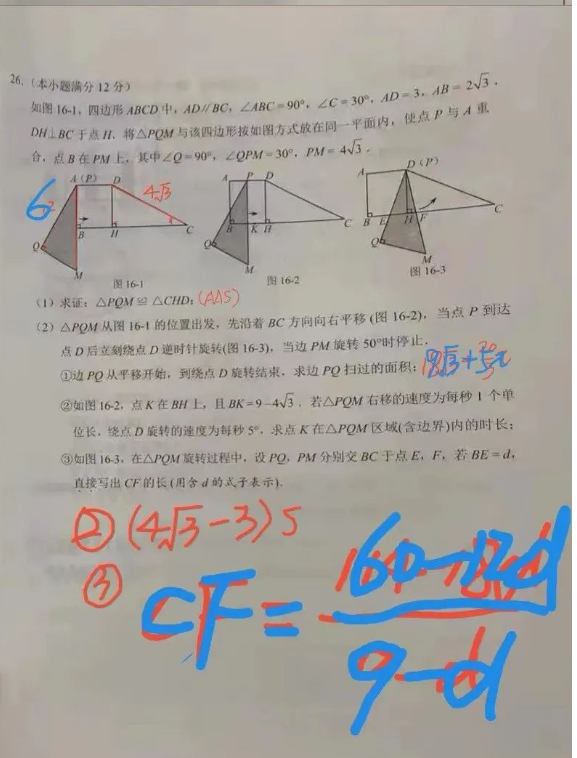 26.（本小题满分 12 分）
如图 16-1，四边形 ABCD 中，AD∥BC，∠ABC＝90°，∠C＝30°，AD＝3，AB＝2√3，
DH⊥BC 于点 H. 将△PQM 与该四边形按如图方式放在同一平面内，使点 P 与 A 重
合，点 B 在 PM 上，其中∠Q＝90°，∠QPM＝30°，PM＝4√3.
A(P) D 4√3
6
B H C
Q
M
图 16-1
A P D
B K H C
Q
M
图 16-2
A D(P)
B E H F C
Q
M
图 16-3
（1）求证：△PQM≌△CHD；(AAS)
（2）△PQM 从图 16-1 的位置出发，先沿着 BC 方向向右平移(图 16-2)，当点 P 到达
点 D 后立刻绕点 D 逆时针旋转(图 16-3)，当边 PM 旋转 50°时停止.
①边 PQ 从平移开始，到绕点 D 旋转结束，求边 PQ 扫过的面积；9√3+5π
②如图 16-2，点 K 在 BH 上，且 BK＝9－4√3. 若△PQM 右移的速度为每秒 1 个单
位长，绕点 D 旋转的速度为每秒 5°，求点 K 在△PQM 区域(含边界)内的时长；
③如图 16-3，在△PQM 旋转过程中，设 PQ，PM 分别交 BC 于点 E，F，若 BE＝d，
直接写出 CF 的长(用含 d 的式子表示).
② (4√3-3)s
③
CF=
60-12d
9-d